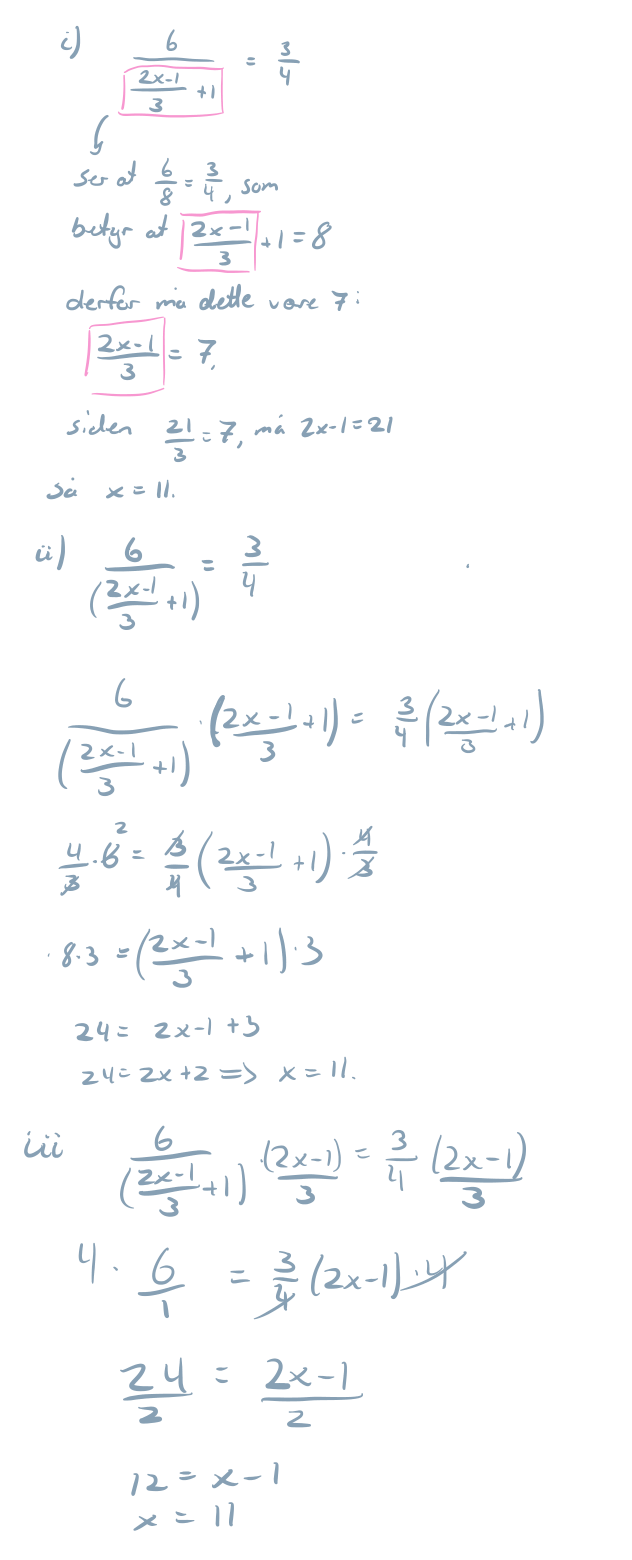 i) 6/((2x-1)/3 +1) = 3/4
ser at 6/8 = 3/4, som
betyr at (2x-1)/3 +1 = 8
derfor må dette være 7:
(2x-1)/3 = 7.
siden 21/3 = 7, må 2x-1 = 21
så x = 11.
ii) 6/((2x-1)/3 +1) = 3/4
6/((2x-1)/3 +1) · ((2x-1)/3 +1) = 3/4 ((2x-1)/3 +1)
4/3 · 6² = 3/4 ((2x-1)/3 +1) · 4/3
8·3 = ((2x-1)/3 +1)·3
24 = 2x-1 +3
24 = 2x+2 => x = 11.
iii 6/((2x-1)/3 +1) · (2x-1)/3 = 3/4 (2x-1)/3
4 · 6/1 = 3/4 (2x-1) · 4
24/2 = (2x-1)/2
12 = x-1
x = 11